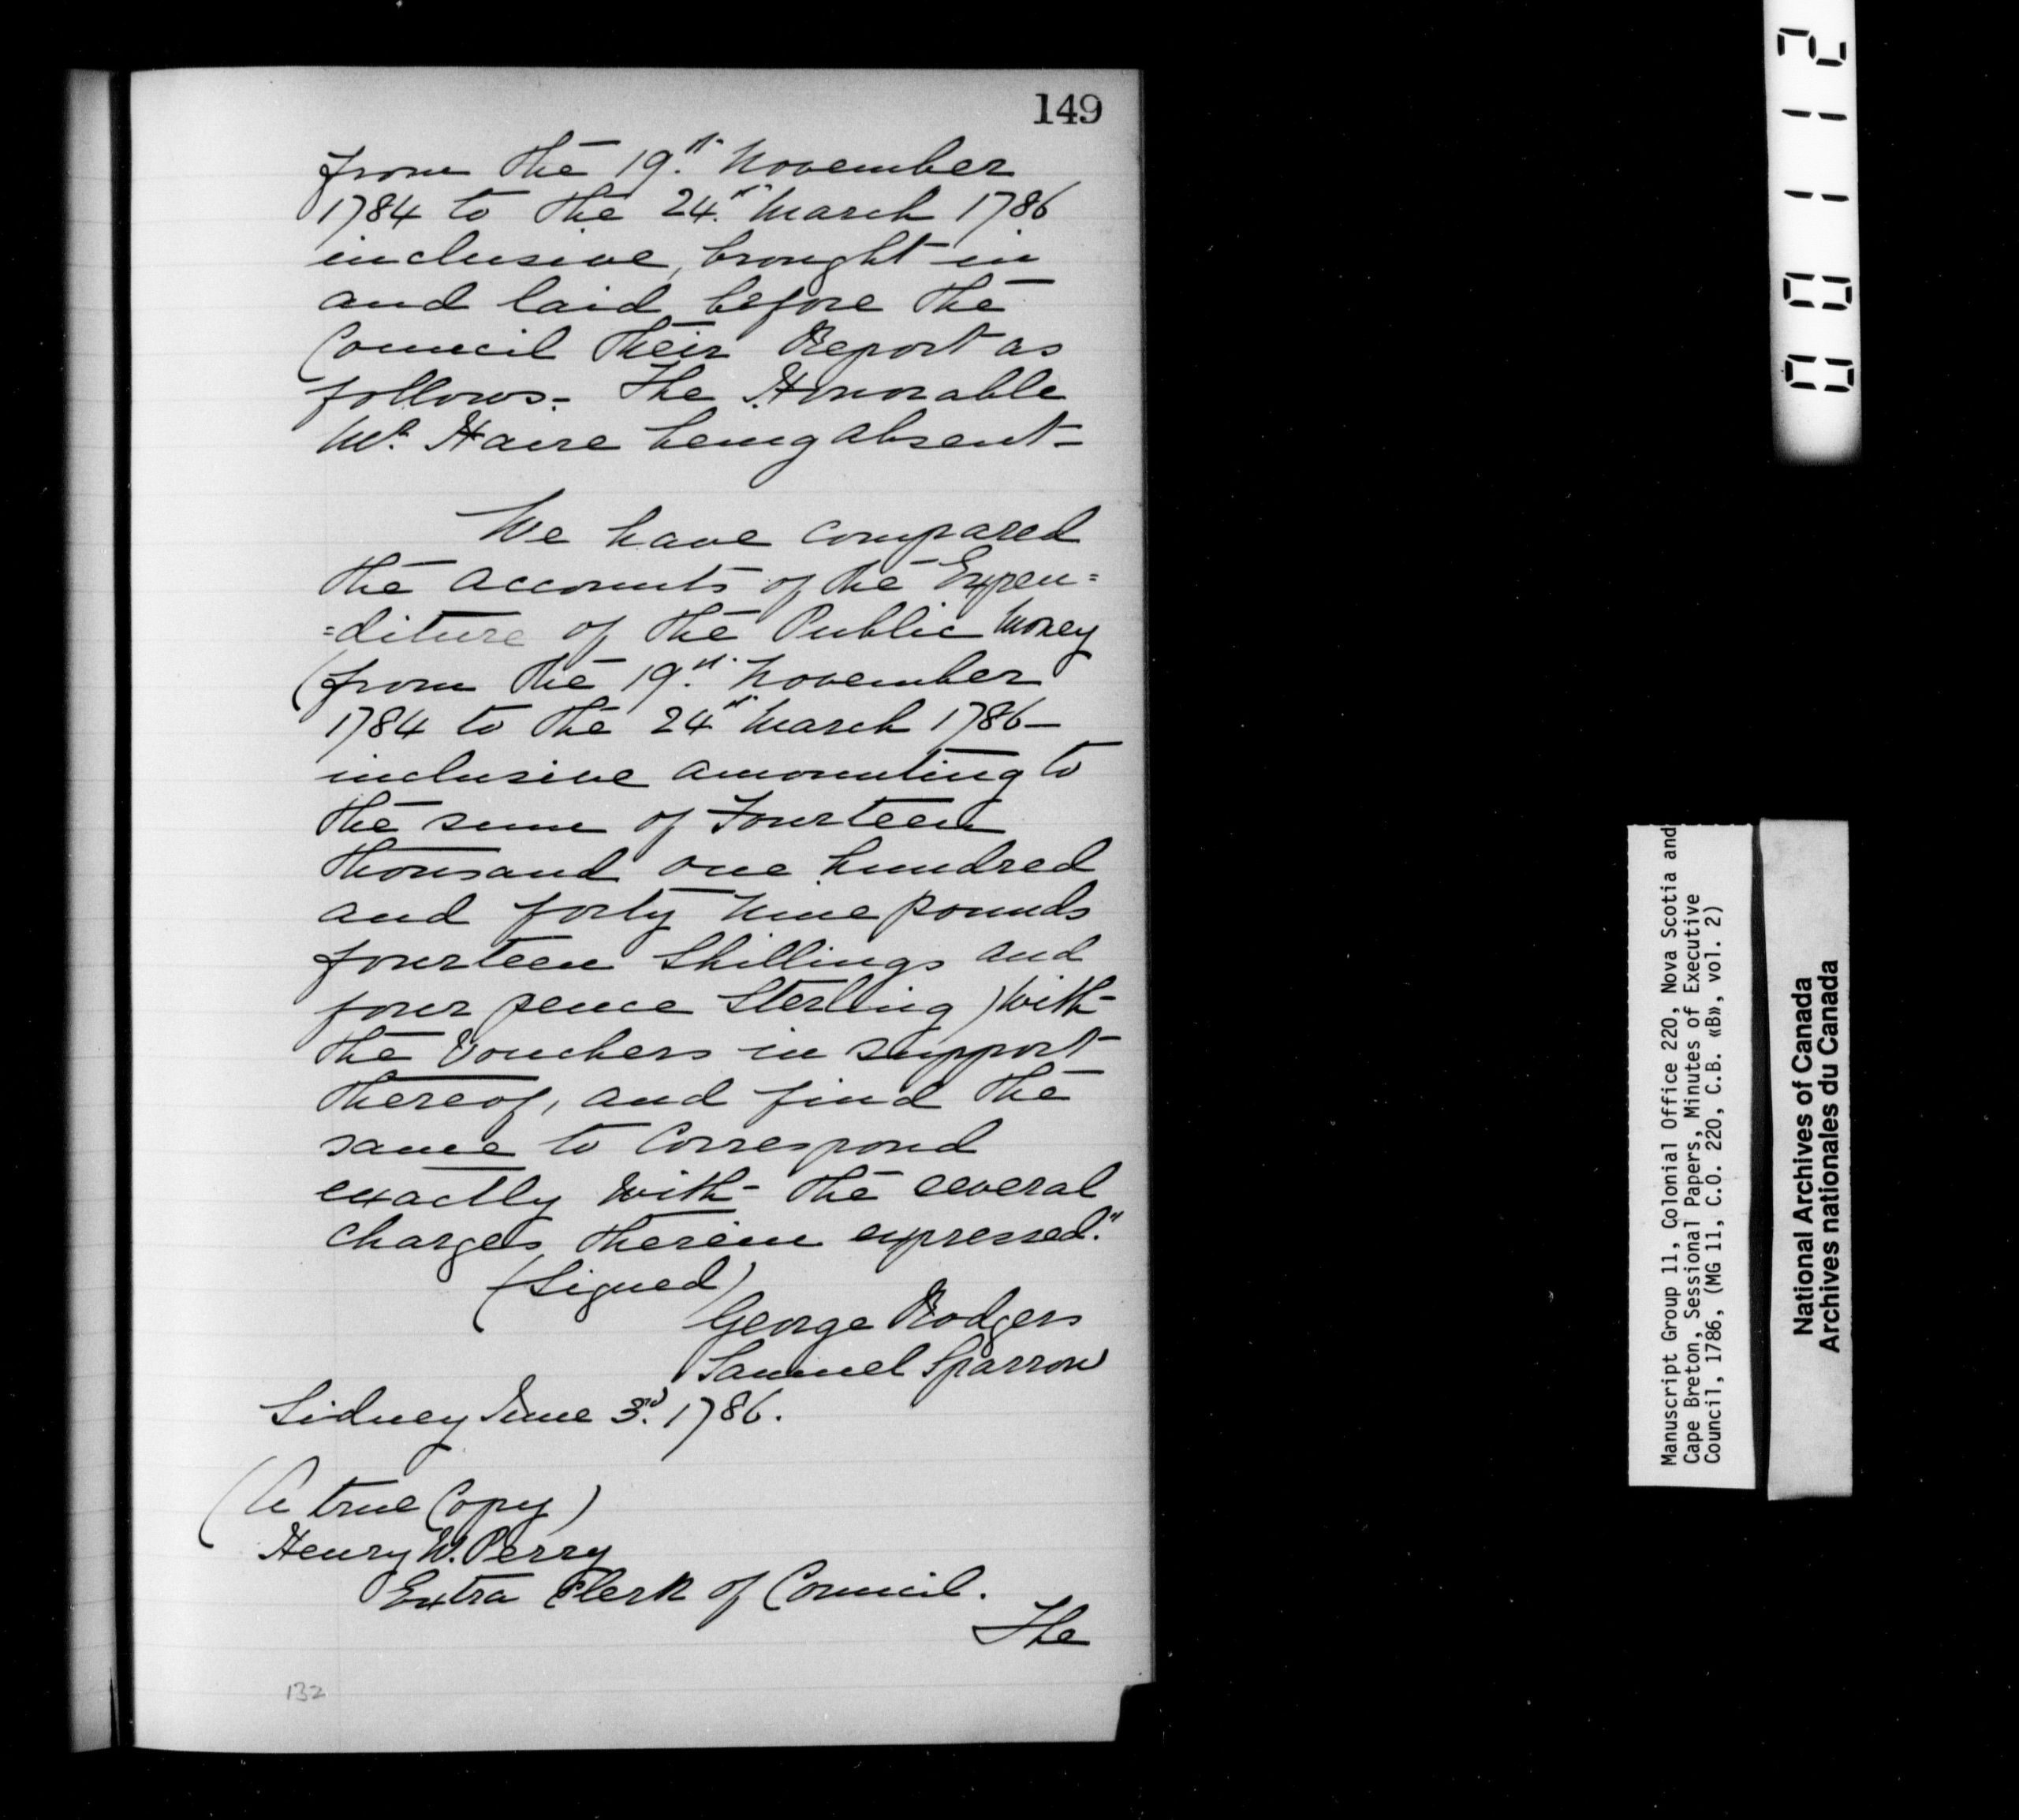 149
from the 19.th November
1784 to the 24.th March 1786
inclusive, brought in
and laid before the
Council their Report as
follows. The Honorable
Mr. Haire being absent -
We have compared
the accounts of the Expen=
=diture of the Public Money
(from the 19.th November
1784 to the 24th March 1786 -
inclusive amounting to
the sum of Fourteen
thousand one hundred
and forty nine pounds
fourteen Shillings and
four pence Sterling) with
the Vouchers in support
thereof, and find the
same to Correspond
exactly with the several
charges therein expressed."
(Signed)
George Rodgers
Samuel Sparrow
Sidney June 3.d 1786.
(A true Copy)
Henry W. Perry
Extra Clerk of Council.
The
132
00112
Manuscript Group 11, Colonial Office 220, Nova Scotia and
Cape Breton, Sessional Papers, Minutes of Executive
Council, 1786, (MG 11, C.O. 220, C.B. «B», vol. 2)
National Archives of Canada
Archives nationales du Canada